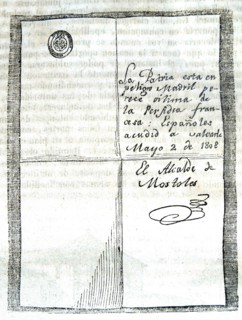 La Patria esta en
peligro Madrid pe-
rece vitima de
la Perfidia fran-
cesa: Españoles
acudid a salvarle
Mayo 2 de 1808
El Alcalde de
Mostoles